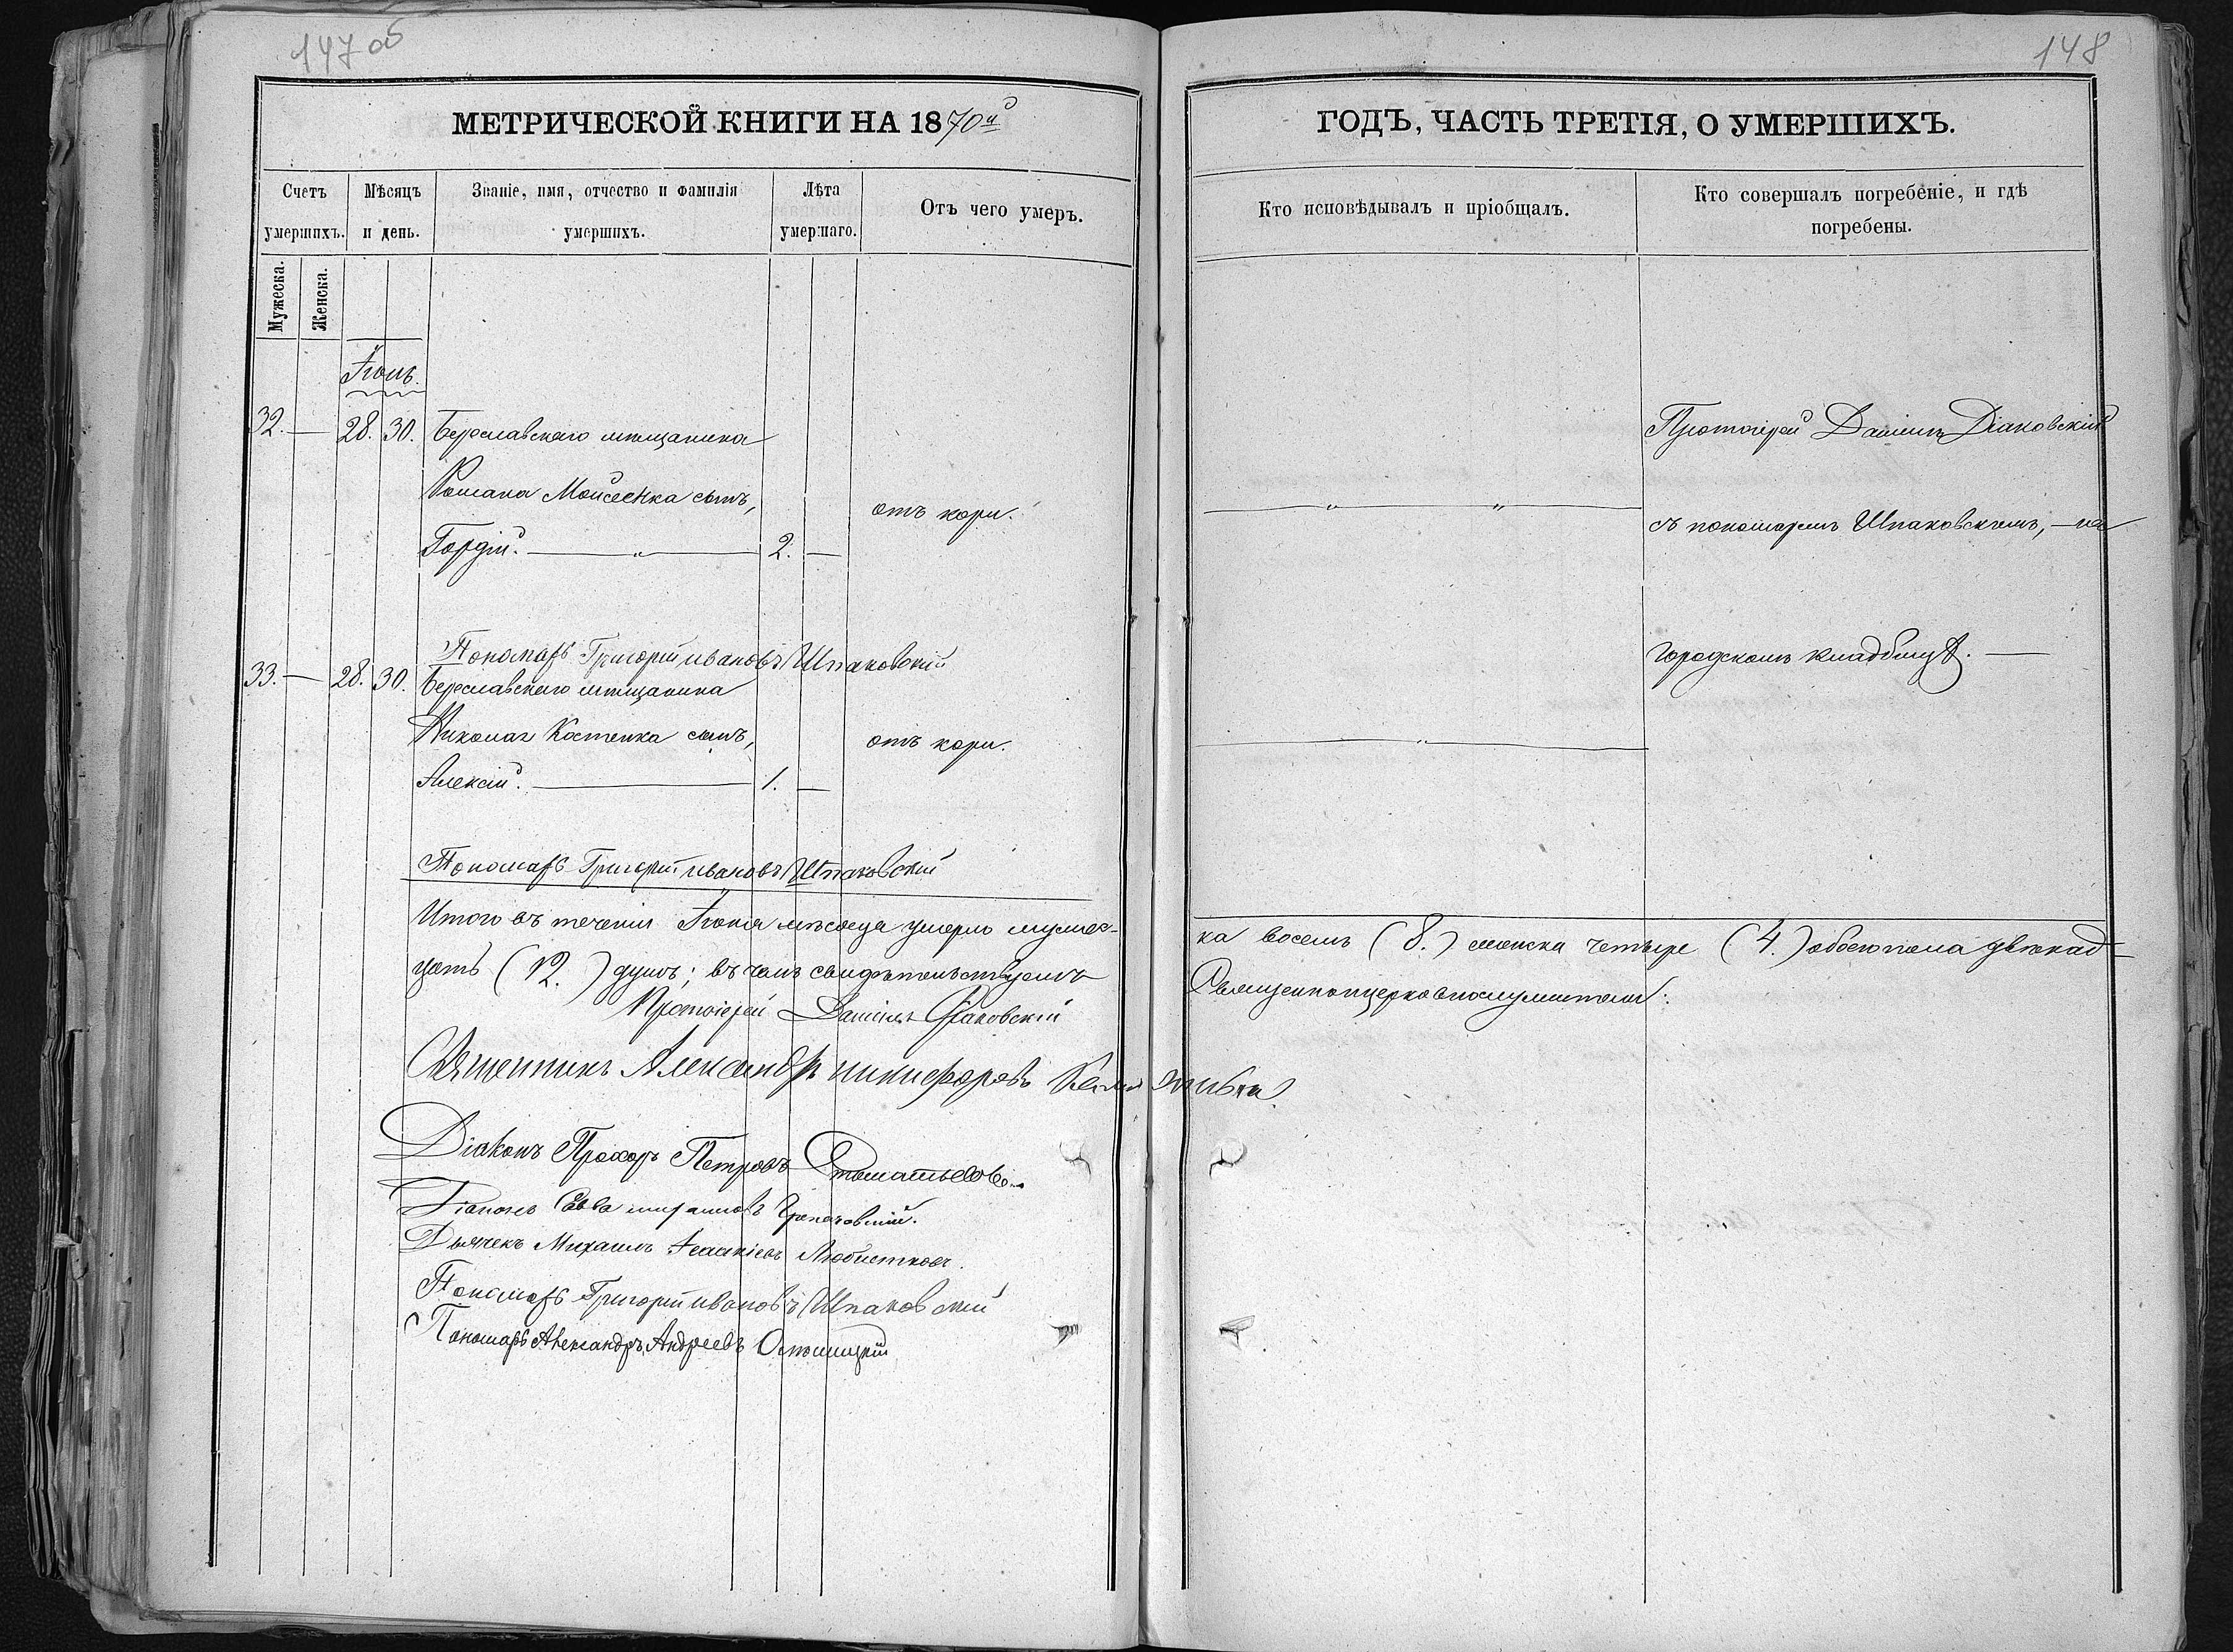 147 об
148
МЕТРИЧЕСКОЙ КНИГИ НА 1870й
ГОДЪ, ЧАСТЬ ТРЕТІЯ, О УМЕРШИХЪ.
Счетъ умершихъ.
Мѣсяцъ и день.
Званіе, имя, отчество и фамилія умершихъ.
Лѣта умершаго.
Отъ чего умеръ.
Кто исповѣдывалъ и пріобщалъ.
Кто совершалъ погребеніе, и гдѣ погребены.
Мужеска.
Женска.
Іюнь.
32. — 28. 30. Береславскаго мѣщанина
Романа Мойсеенка сынъ,
Гордій. — 2. —
отъ кори.
Протоіерей Даніилъ Діаковскій
съ пономаремъ Шпаковскимъ, — на
городскомъ кладбищѣ. —
Пономарь Григорій ивановъ Шпаковскій
33. — 28. 30. Береславскаго мѣщанина
Николая Костенка сынъ,
Алексій. — 1. —
отъ кори.
Пономарь Григорій ивановъ Шпаковскій
Итого въ теченіи Іюня мѣсяца умерло мужес-
ка восемь (8.) женска четыре (4.) обоего пола двѣнад-
цать (12.) душъ; въ чемъ свидѣтельствуемъ
Священноцерковнослужители:
Протоіерей Даніилъ Діаковскій
Священникъ Александръ никифоровъ
Діаконъ Прохоръ Петровъ
Діаконъ Савва
Дьячекъ Михаилъ Любистковъ.
Пономарь Григорій ивановъ Шпаковскій
Пономарь Александръ Андреевъ